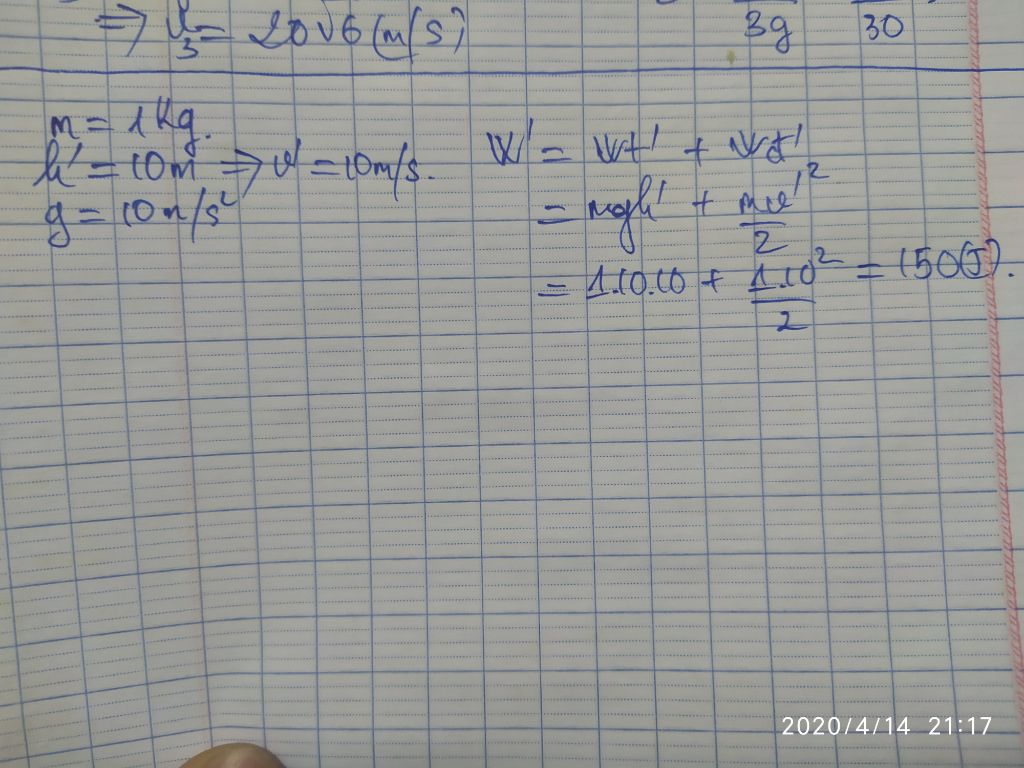 ⇒ v₃ = 20√6 (m/s)
3g 30
m = 1 Kg.
h' = 10m ⇒ v' = 10m/s.
g = 10m/s²
W' = Wt' + Wđ'
= mgh' + mv'²/2
= 1.10.10 + 1.10²/2 = 150(J).
2020/4/14 21:17